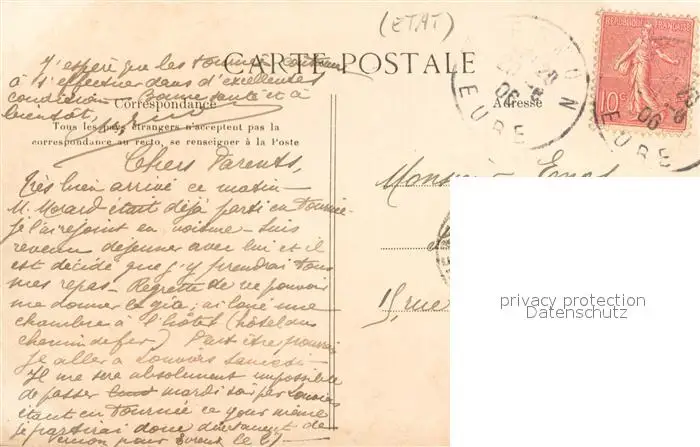 (ETAT)
J'espère que les tournées
à s'effectuer dans d'excellentes
conditions. Bonne santé et à
bientôt,
CARTE POSTALE
Correspondance
Tous les pays étrangers n'acceptent pas la
correspondance au recto, se renseigner à la Poste
Adresse
REPUBLIQUE FRANÇAISE
10c
EURE
06
EURE
06
Chers Parents,
Très bien arrivé ce matin –
M. Morard était déjà parti en tournée
je l'ai rejoint en voiture – Suis
revenu déjeuner avec lui et il
est décidé que j'y prendrai tous
mes repas – Regrette de ne pouvoir
me donner le gîte; ai loué une
chambre à l'hôtel (hôtel du
chemin de fer) Peut être pourrai
je aller à Louviers samedi –
Il me sera absolument impossible
de passer mardi soir par Louviers
étant en tournée ce jour même
je partirai donc directement de
Vernon pour le
Monsieur
15, rue
privacy protection
Datenschutz